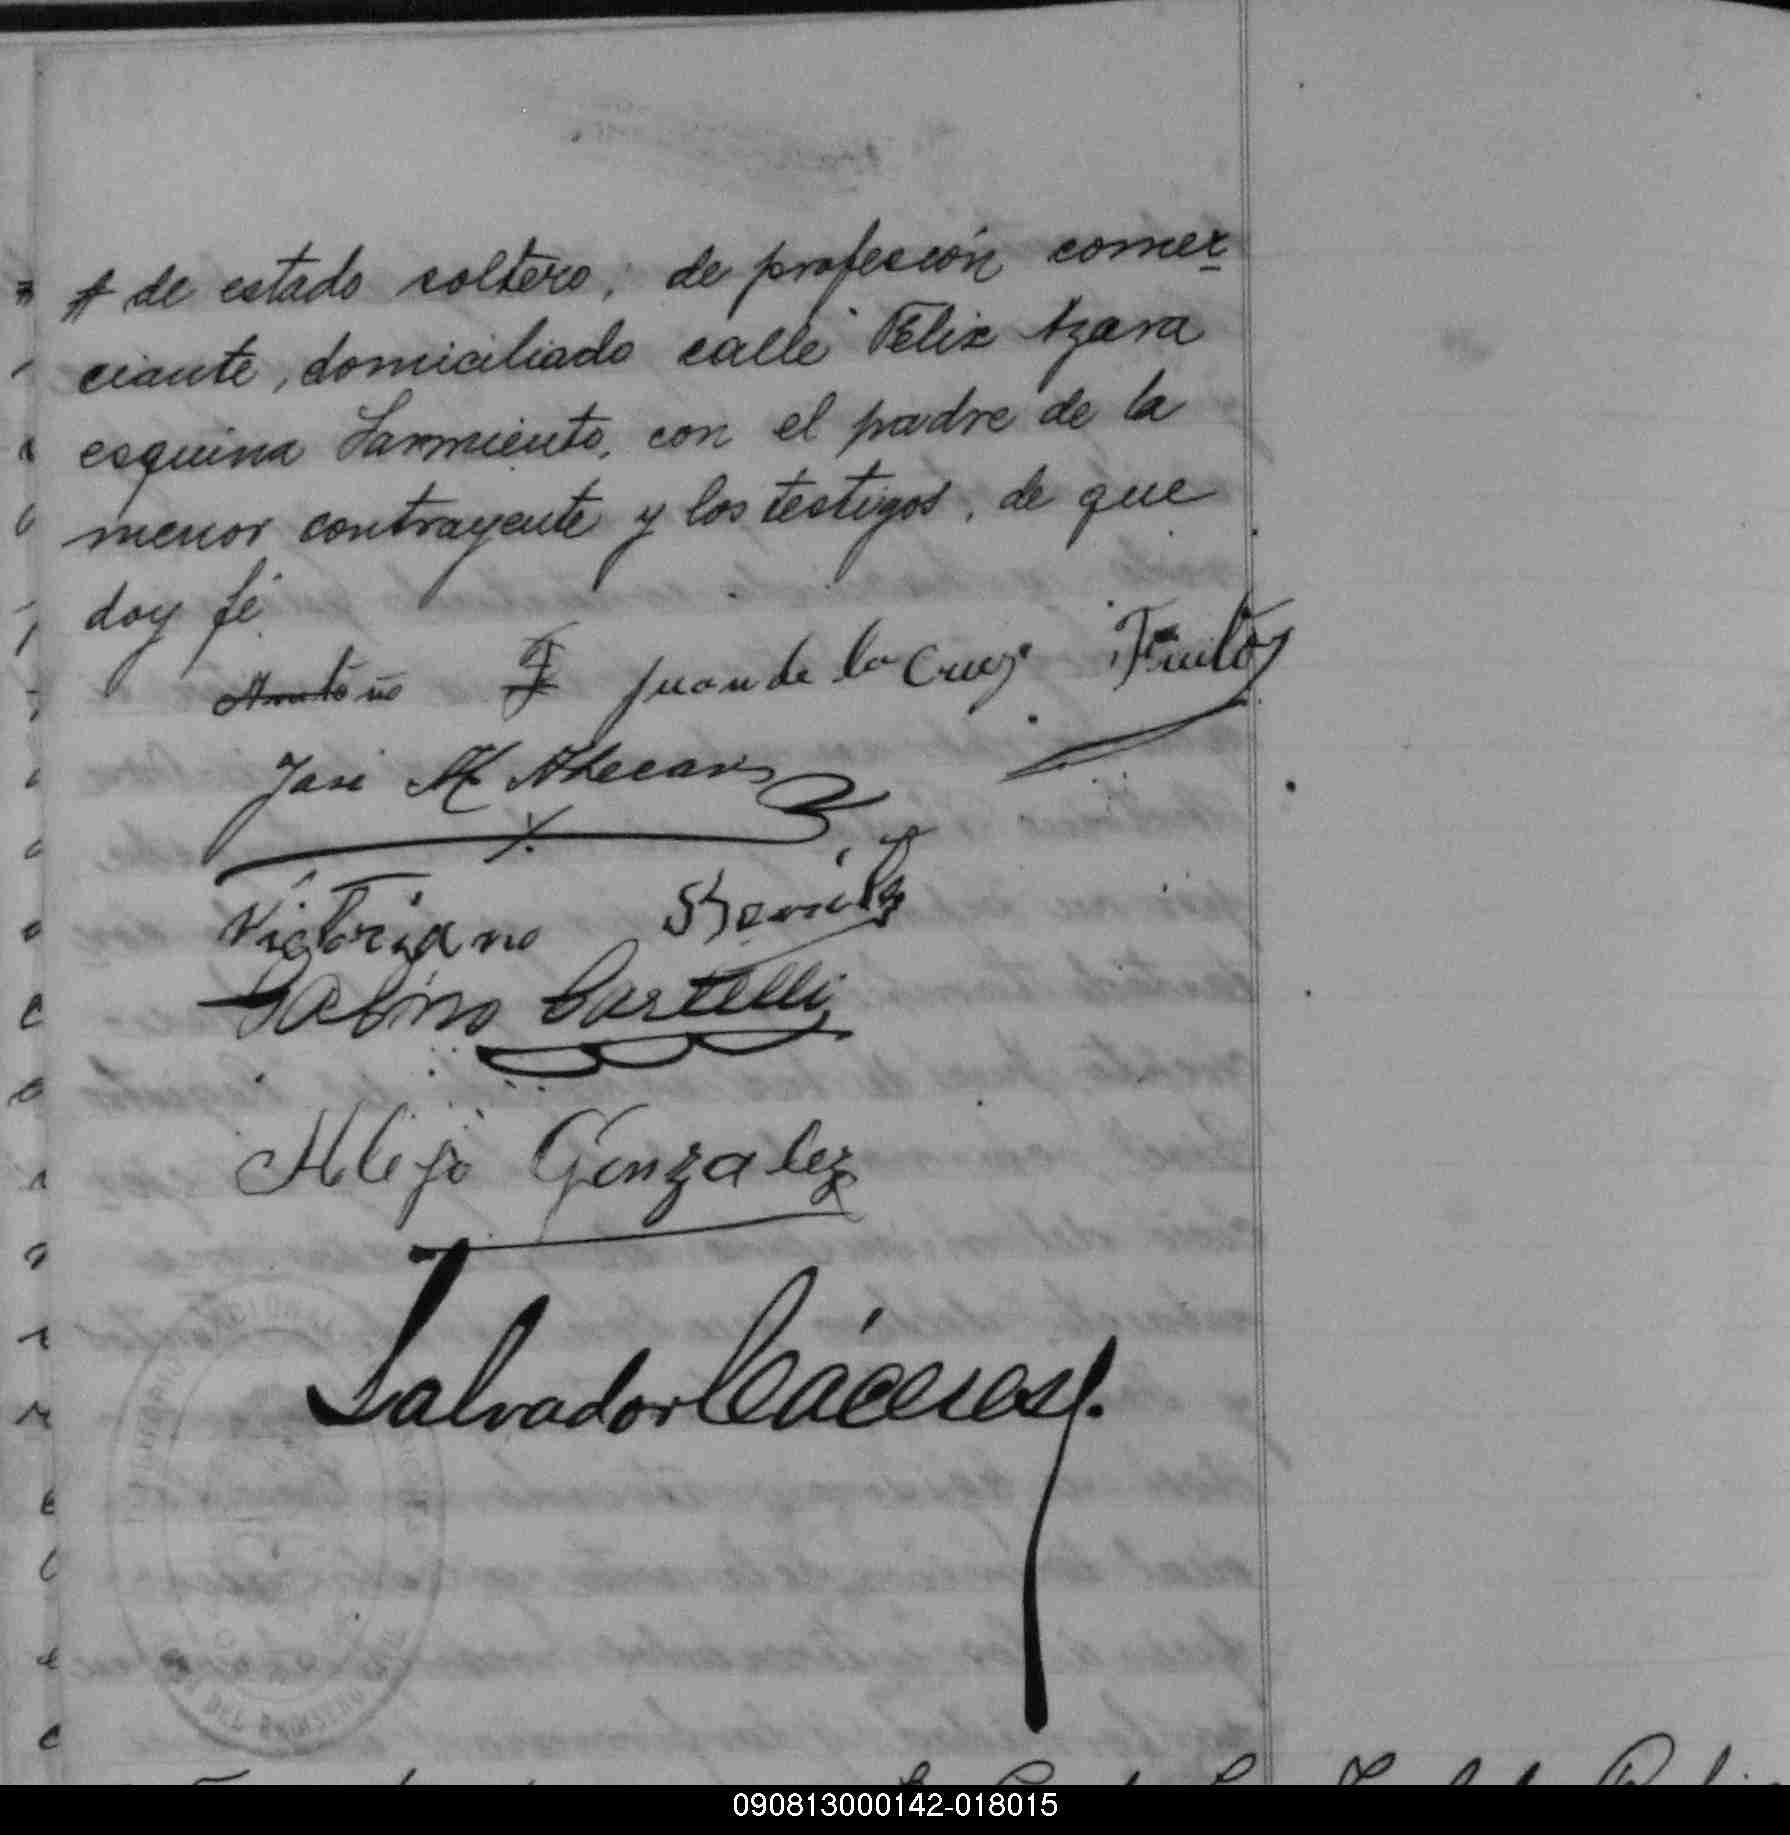 # de estado soltero, de profesión comer
ciante, domiciliado calle Felix Azara
esquina Sarmiento, con el padre de la
menor contrayente y los testigos, de que
doy fé
Antonio F Juan de la Cruz
José M
Victoriano
Sabino Castelli
Alejo Gonzalez
Salvador Cáceres
090813000142-018015